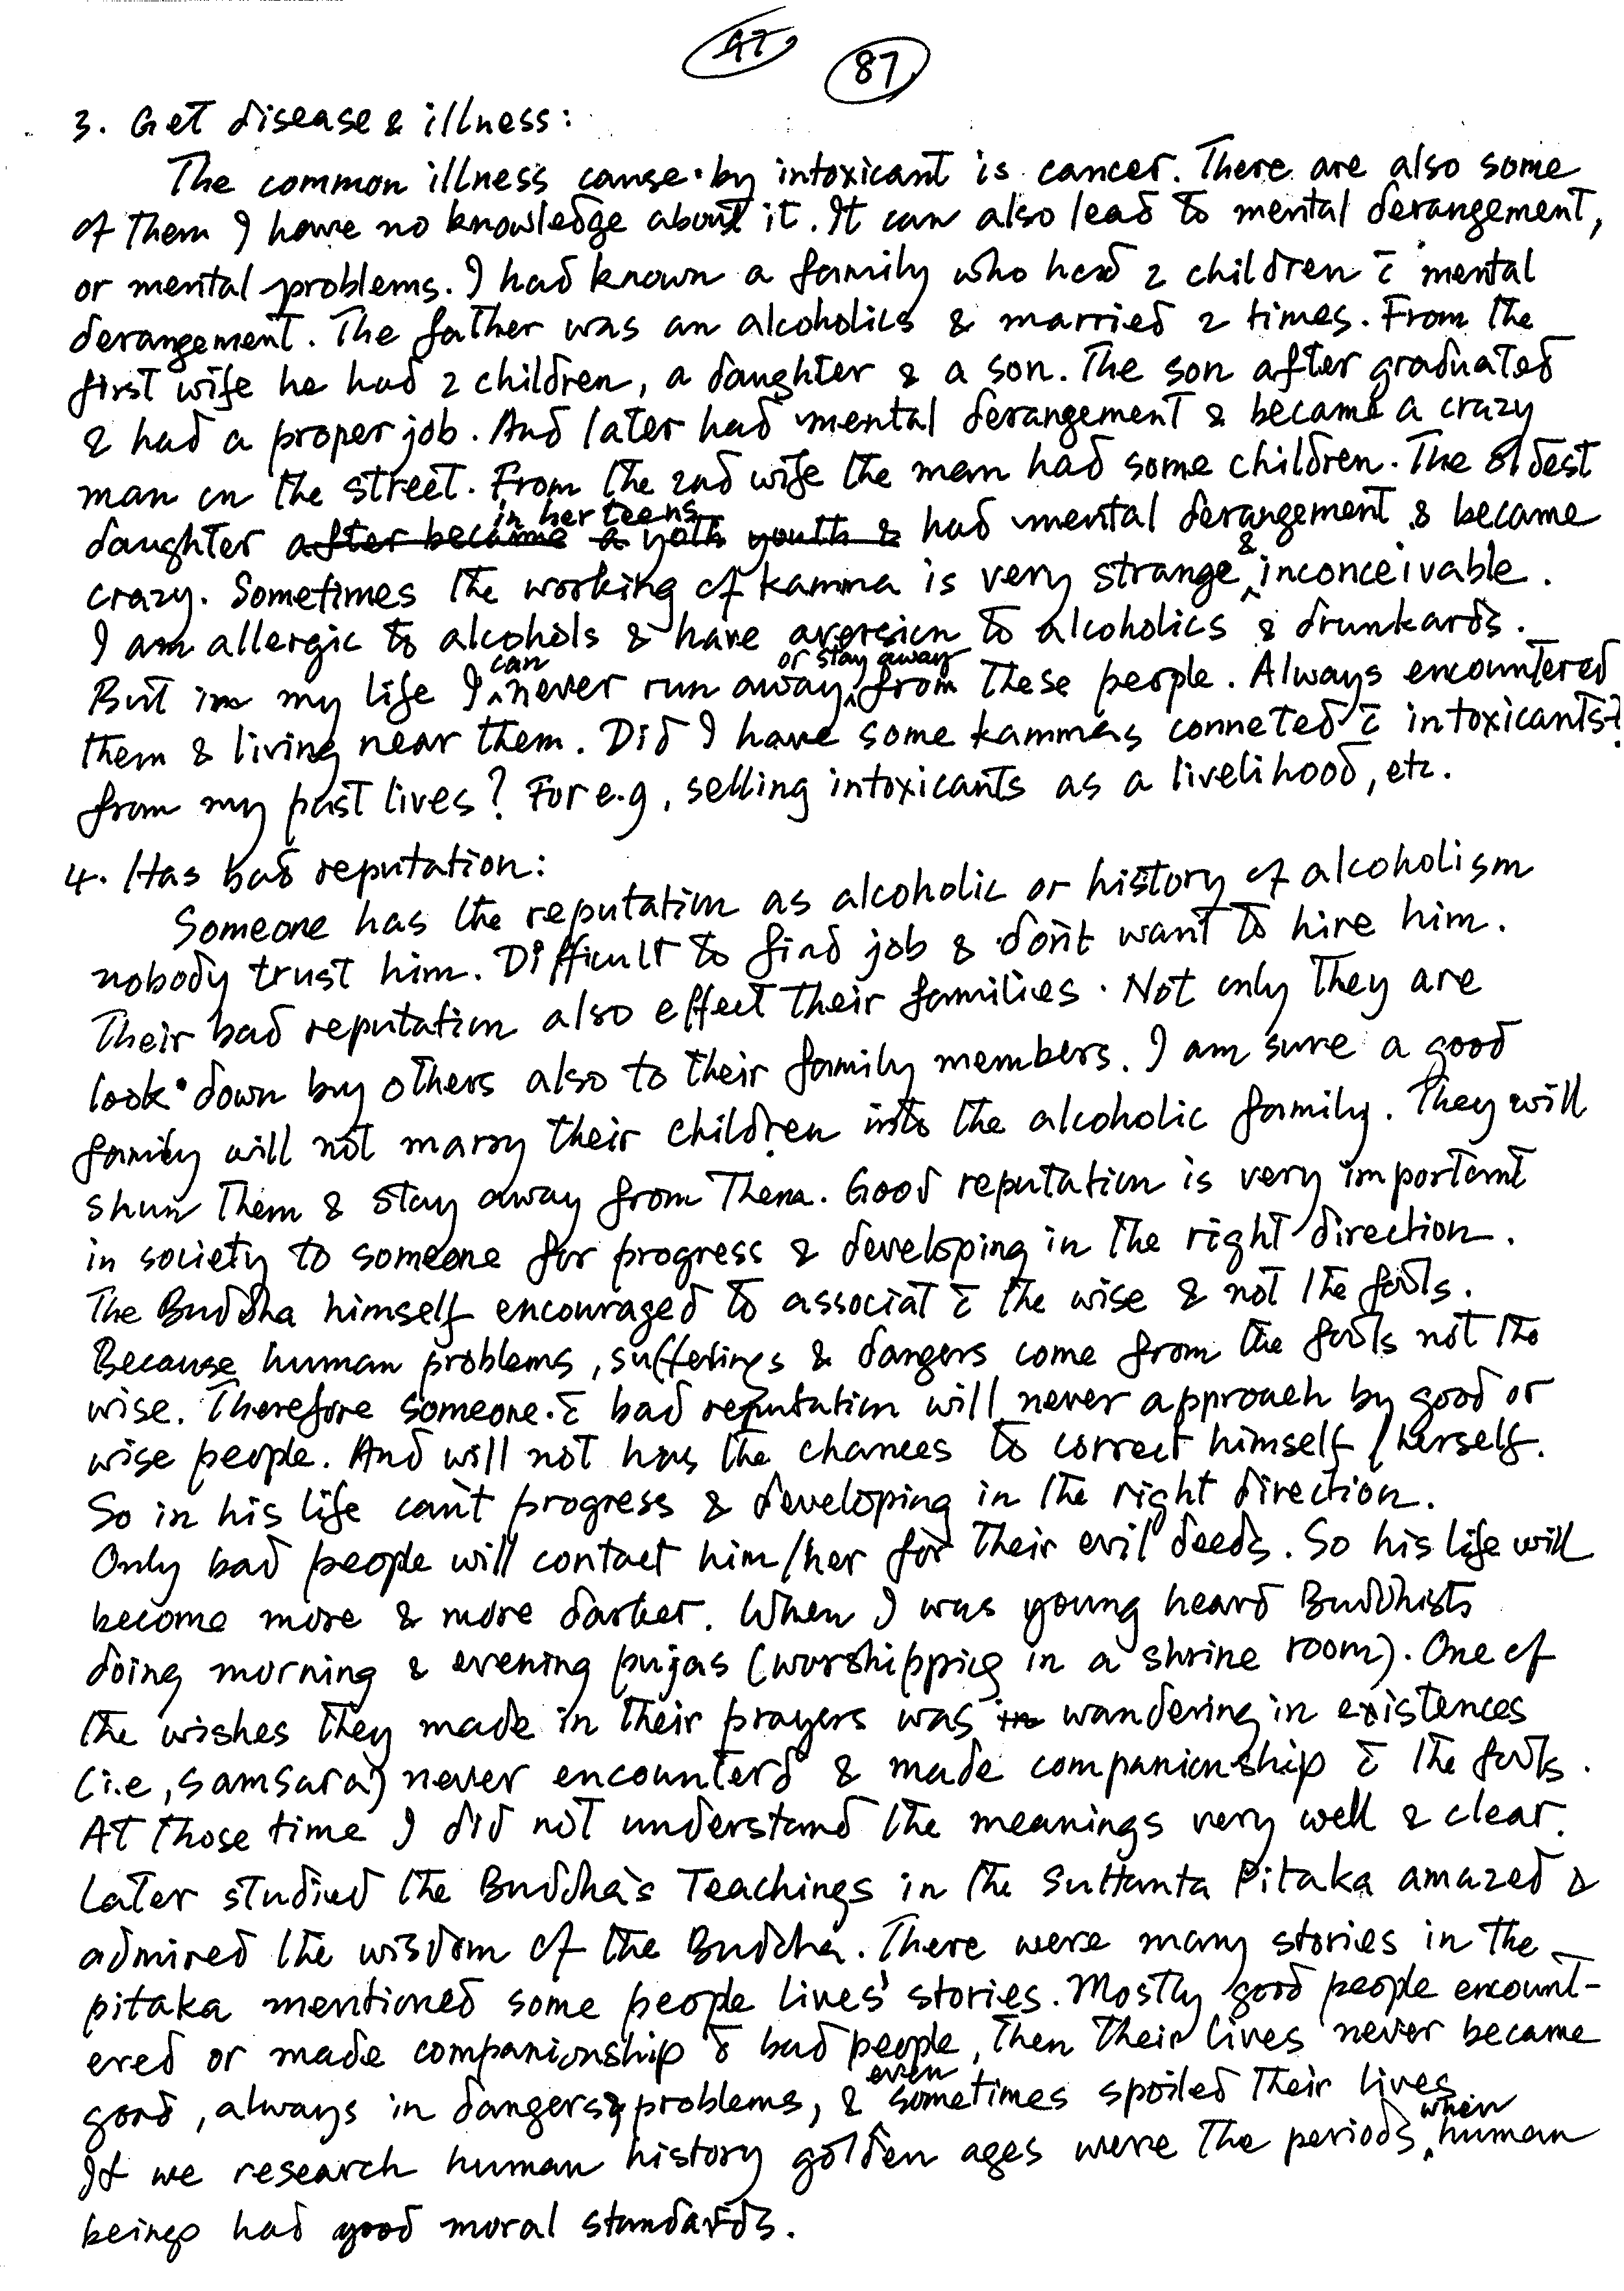 47 87
3. Get disease & illness:
The common illness cause by intoxicant is cancer. There are also some
of them I have no knowledge about it. It can also lead to mental derangement,
or mental problems. I had known a family who had 2 children c̄ mental
derangement. The father was an alcoholics & married 2 times. From the
first wife he had 2 children, a daughter & a son. The son after graduated
& had a proper job. And later had mental derangement & became a crazy
man on the street. From the 2nd wife the man had some children. The oldest
daughter after became a yoth youth & in her teens had mental derangement & became
crazy. Sometimes the working of kamma is very strange & inconceivable.
I am allergic to alcohols & have aversion to alcoholics & drunkards.
But in my life I can never run away or stay away from these people. Always encountered
them & living near them. Did I have some kammas conneted c̄ intoxicants?
from my past lives? For e.g, selling intoxicants as a livelihood, etc.
4. Has bad reputation:
Someone has the reputation as alcoholic or history of alcoholism
nobody trust him. Difficult to find job & don't want to hire him.
Their bad reputation also effect their families. Not only they are
look down by others also to their family members. I am sure a good
family will not marry their children into the alcoholic family. They will
shun them & stay away from them. Good reputation is very important
in society to someone for progress & developing in the right direction.
The Buddha himself encouraged to associat c̄ the wise & not the fools.
Because human problems, sufferings & dangers come from the fools not the
wise. Therefore someone c̄ bad reputation will never approach by good or
wise people. And will not has the chances to correct himself/herself.
So in his life can't progress & developing in the right direction.
Only bad people will contact him/her for their evil deeds. So his life will
become more & more darker. When I was young heard Buddhists
doing morning & evening pujas (worshipping in a shrine room). One of
the wishes they made in their prayers was in wandering in existences
(i.e, samsara) never encounterd & made companionship c̄ the fools.
At those time I did not understand the meanings very well & clear.
Later studied the Buddha's Teachings in the Suttanta Pitaka amazed &
admired the wisdom of the Buddha. There were many stories in the
pitaka mentioned some people lives' stories. Mostly good people encount-
ered or made companionship c̄ bad people, then their lives never became
good, always in dangers & problems, & even sometimes spoiled their lives.
If we research human history golden ages were the periods when human
beings had good moral standards.